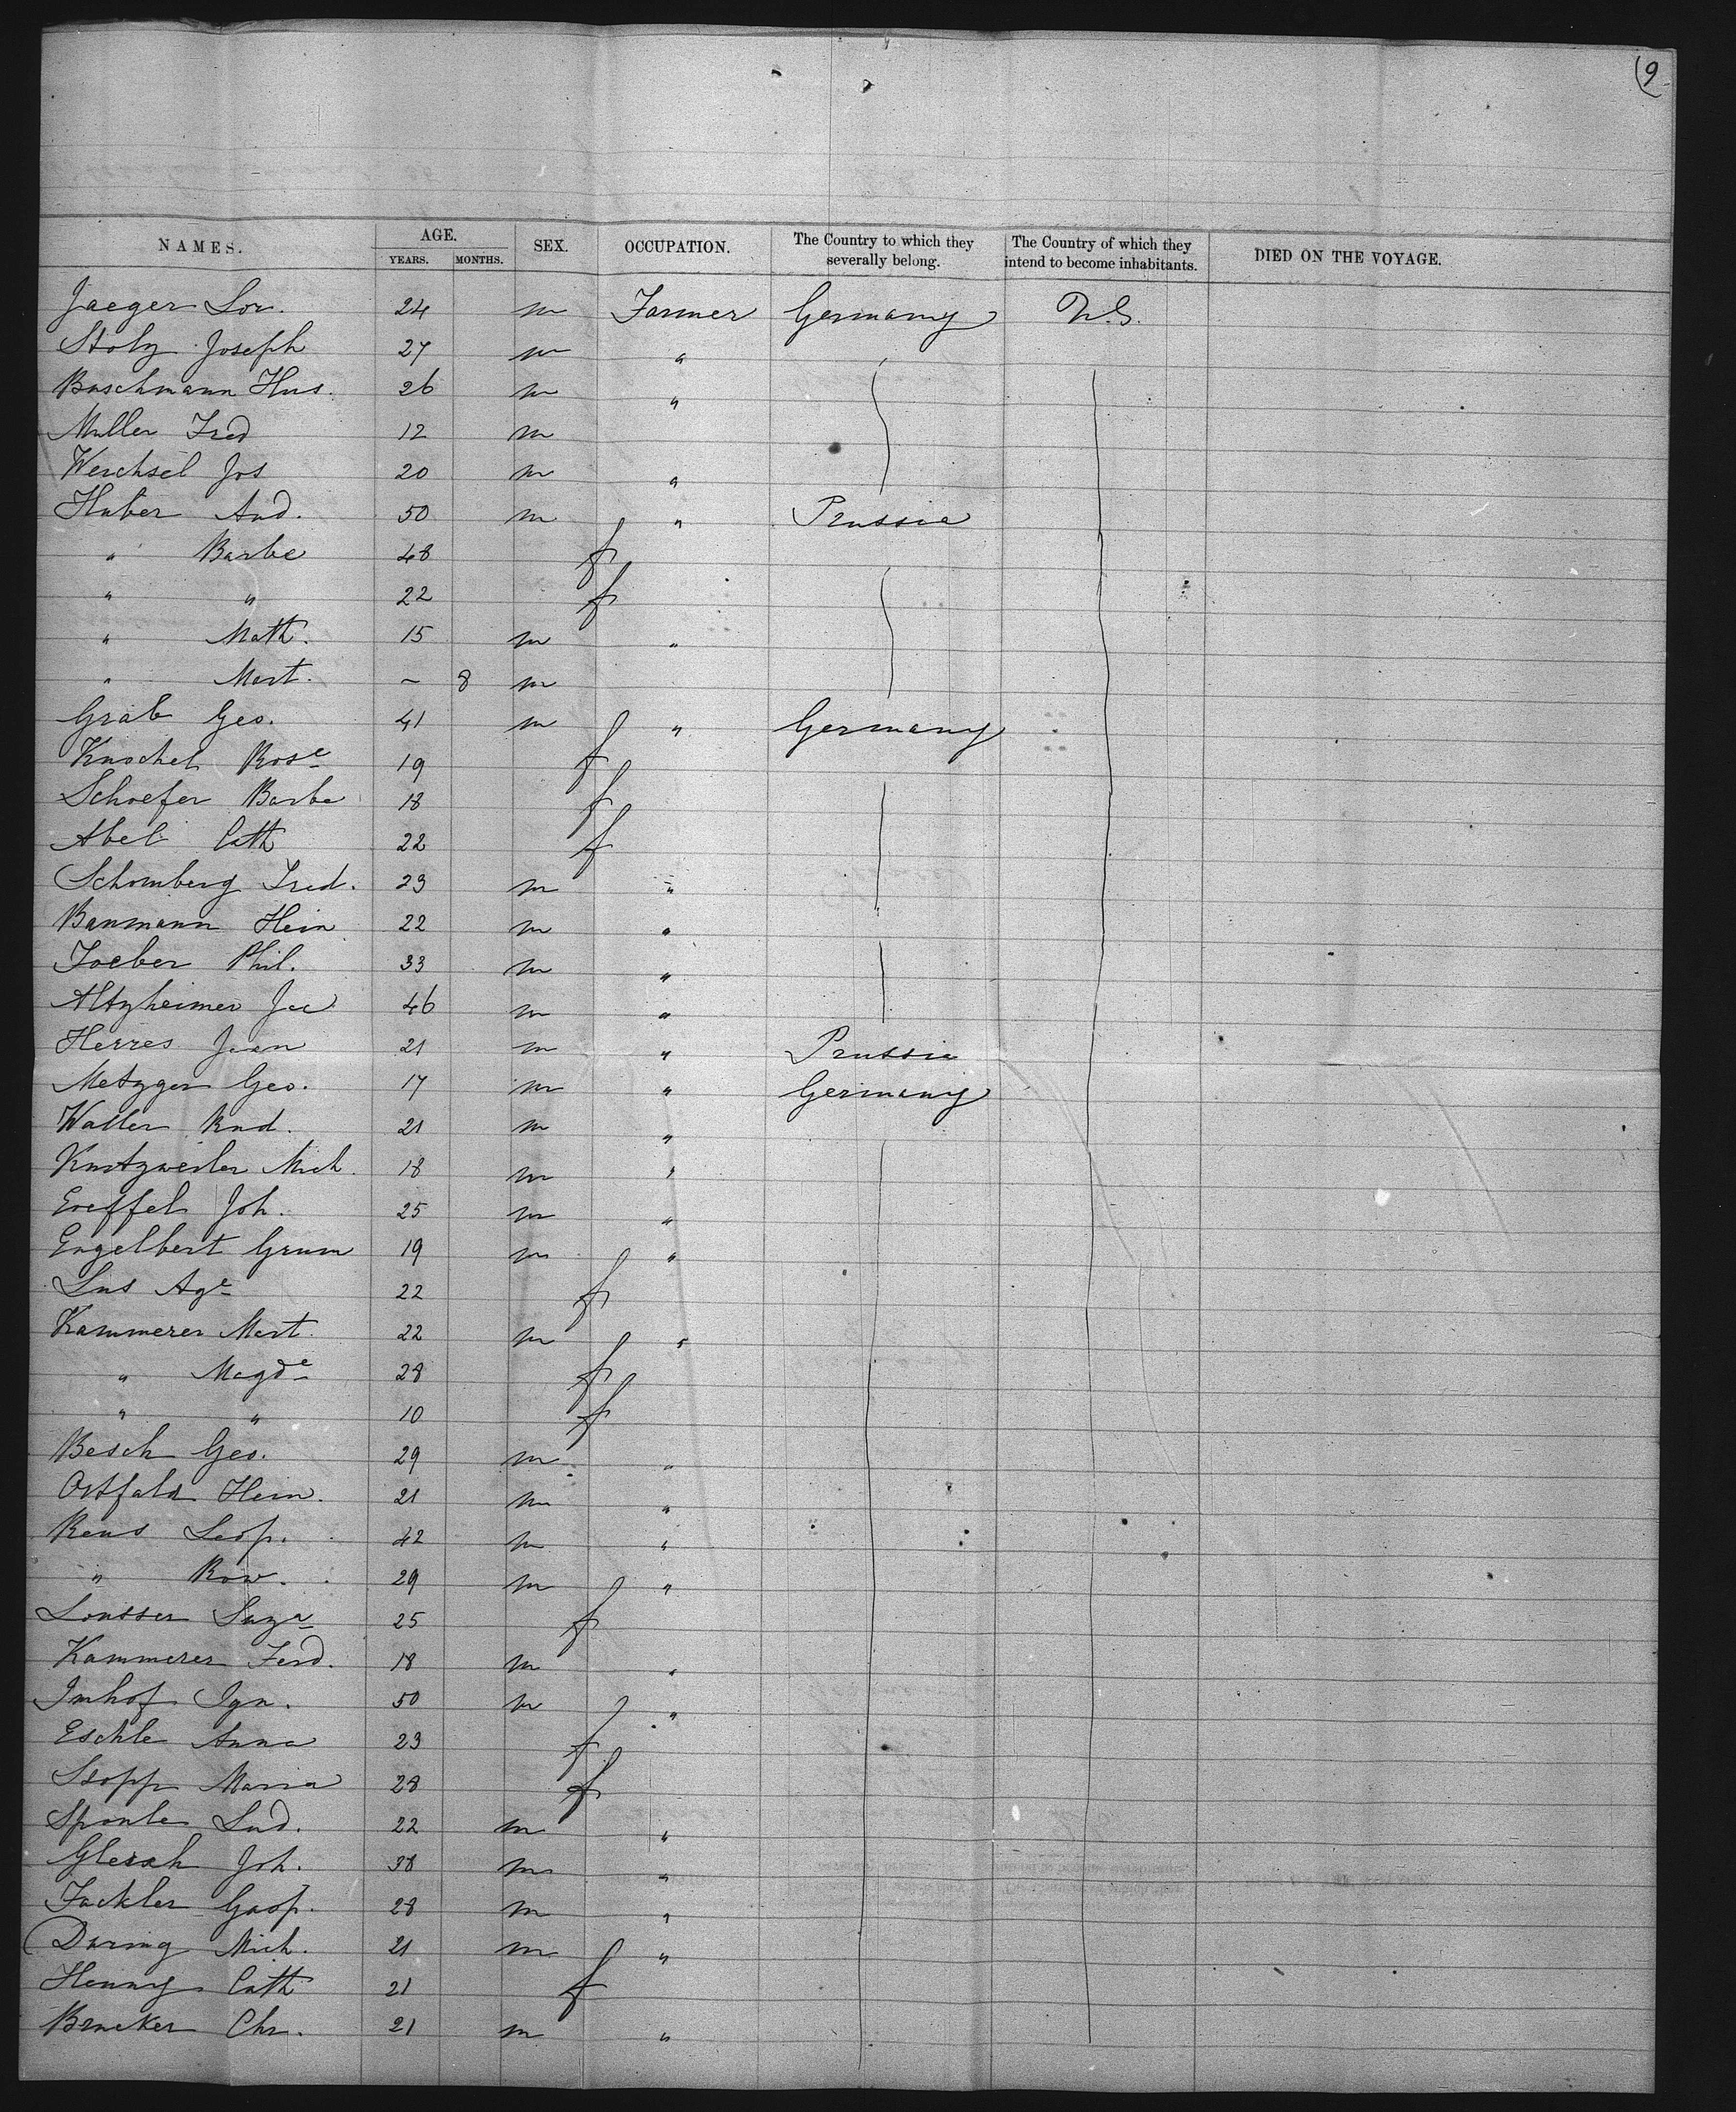 9
NAMES. AGE. YEARS. MONTHS. SEX. OCCUPATION. The Country to which they severally belong. The Country of which they intend to become inhabitants. DIED ON THE VOYAGE.
Jaeger Lor. 24 m Farmer Germany U.S.
Stolz Joseph 27 m "
Buschmann Hus. 26 m "
Muller Fred 12 m
Werchsel Jos 20 m "
Huber And. 50 m " Prussia
" Barbe 48 f
" " 22 f
" Math. 15 m "
" Mart. ~ 8 m
Grab Geo. 41 m " Germany
Knochel Rose 19 f
Schoefer Barbe 18 f
Abel Cath 22 f
Schomberg Fred. 23 m "
Baumann Hein 22 m "
Foeber Phil. 33 m "
Altzheimer Jac 46 m "
Herres Jean 21 m " Prussia
Metzger Geo. 17 m " Germany
Walter Rud. 21 m "
Kurtzweiler Mich. 18 m "
Eoeffel Joh. 25 m "
Engelbert Grum 19 m "
Lus Age 22 f
Kammerer Mart. 22 m "
" Magde 28 f
" " 10 f
Besch Geo. 29 m "
Ostfald Hein. 21 m "
Reus Leop. 42 m "
" Row. 29 m "
Lousser Suza 25 f
Kammerer Ferd. 18 m "
Imhof Ign. 50 m "
Eschle Anna 23 f
Stopp Maria 28 f
Sponle Lud. 22 m "
Glesch Joh. 38 m "
Fackler Gasp. 28 m "
During Mich. 21 m "
Henny Cath 21 f
Brucker Chr. 21 m "